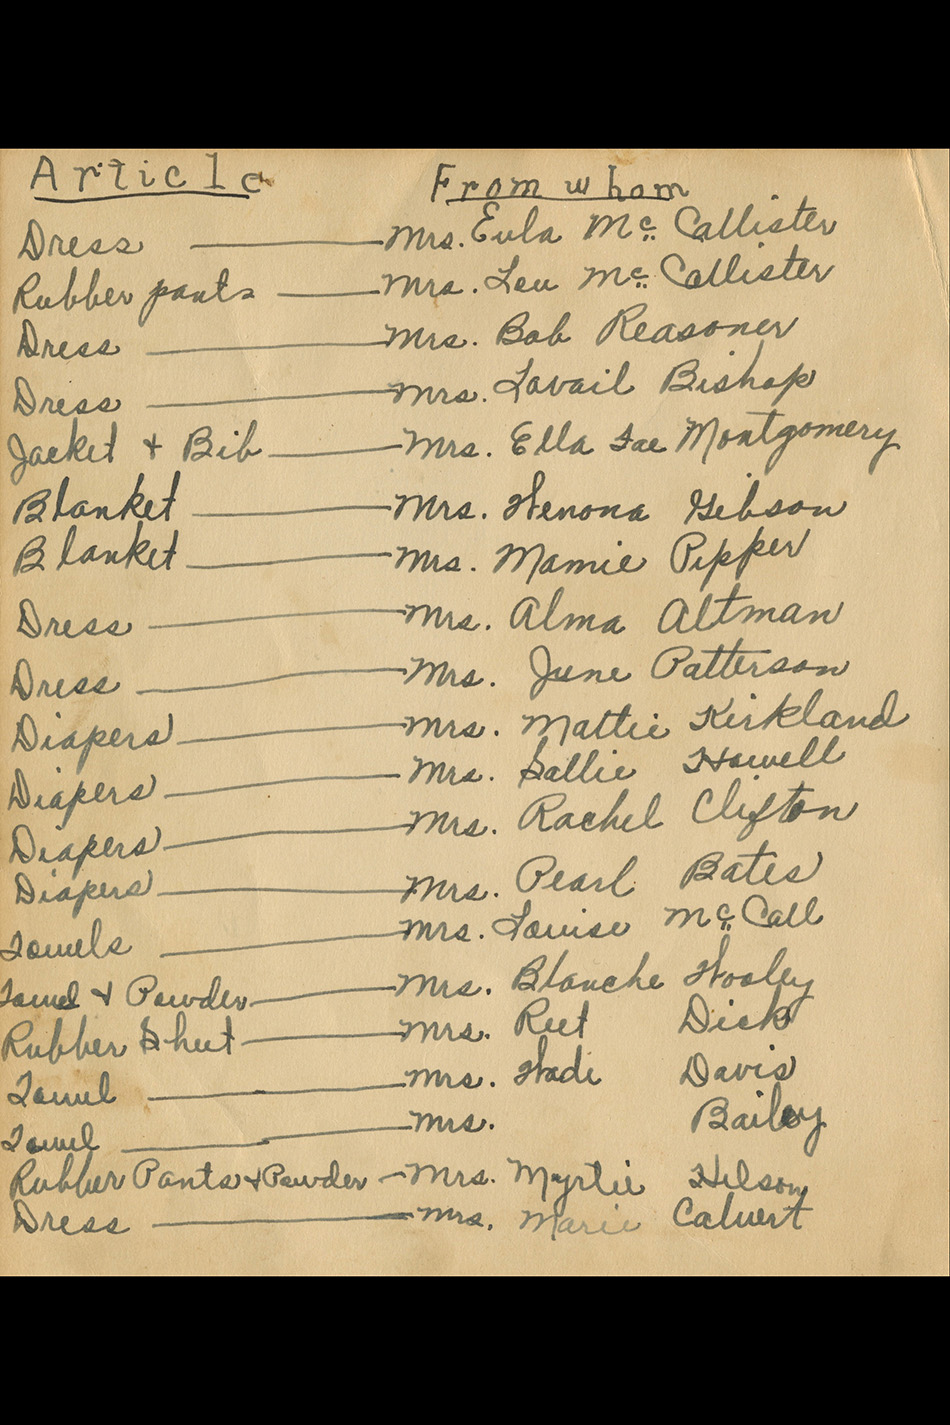 Article From whom
Dress Mrs. Eula Mc Callister
Rubber pants Mrs. Lou Mc Callister
Dress Mrs. Bob Reasoner
Dress Mrs. Lavail Bishop
Jacket + Bib Mrs. Ella Fae Montgomery
Blanket Mrs. Wenona Gibson
Blanket Mrs. Mamie Pipper
Dress Mrs. Alma Altman
Dress Mrs. June Patterson
Diapers Mrs. Mattie Kirkland
Diapers Mrs. Sallie Howell
Diapers Mrs. Rachel Clifton
Diapers Mrs. Pearl Bates
Towels Mrs. Louise Mc Call
Towel + Powder Mrs. Blanche Wooley
Rubber Sheet Mrs. Reet Dick
Towel Mrs. Wade Davis
Towel Mrs. Bailey
Rubber Pants + Powder Mrs. Myrtie
Dress Mrs. Marie Calvert